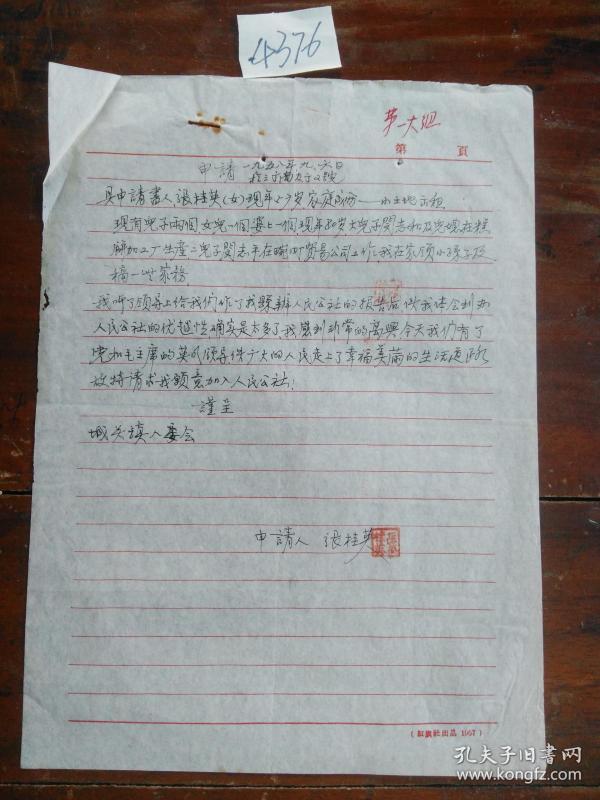 4376
第一大组
第 頁
申請 一九五八年九.六日
具申請書人張桂英(女)現年59岁家庭成份——小土地示租
現有兒子兩個女兒一個婆上一個現年80岁大兒子閆志和及兒媳在
加工厂生產二兒子閆志平在 貿易公司工作我在家顾小孩子及
搞一些家務
我听了領导上给我們作了我縣辦人民公社的报告后以我体会到办
人民公社的优越性确实是太多了我感到非常的高興今天我們有了
党和毛主席的英明領导使广大的人民走上了幸福美满的生活道路
故特請求我願意加入人民公社!
謹呈
城关鎮人委会
申請人 張桂英
(紅旗社出品 1957)
孔夫子旧書网
www.kongfz.com